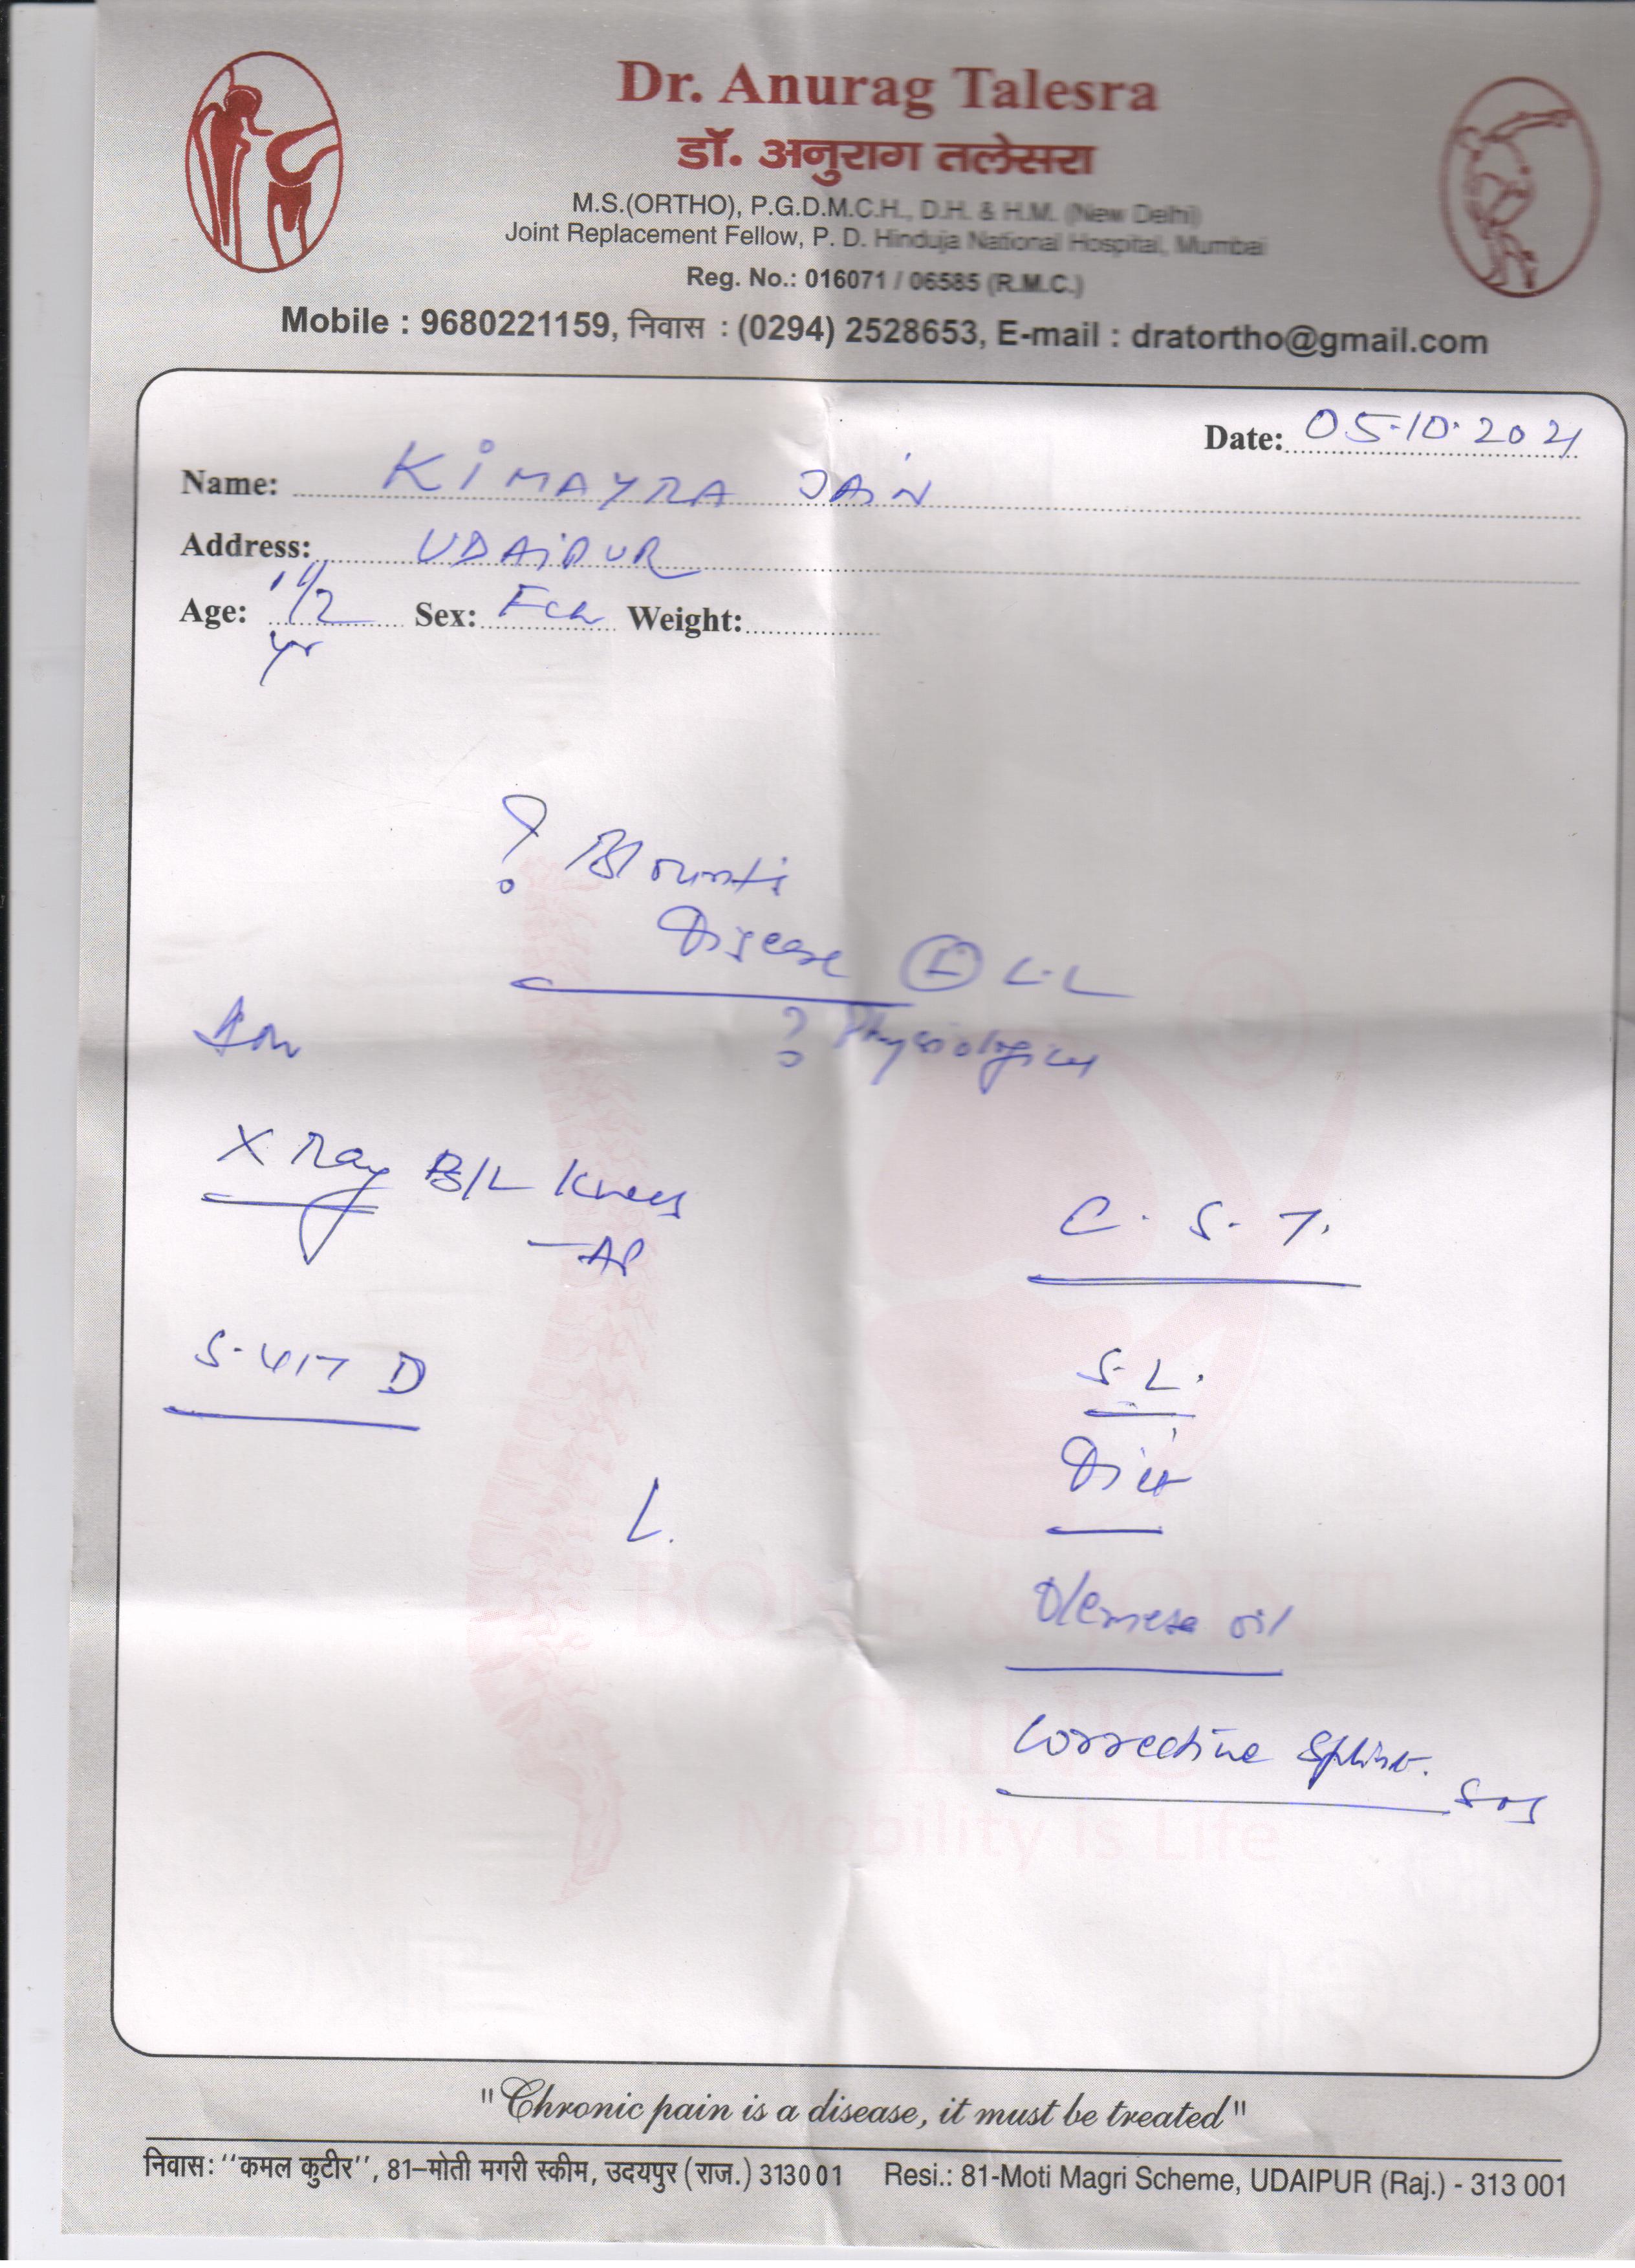 Dr. Anurag Talesra
डॉ. अनुराग तलेसरा
M.S.(ORTHO), P.G.D.M.C.H., D.H. & H.M. (New Delhi)
Joint Replacement Fellow, P. D. Hinduja National Hospital, Mumbai
Reg. No.: 016071 / 06585 (R.M.C.)
Mobile : 9680221159, निवास : (0294) 2528653, E-mail : dratortho@gmail.com
Date: 05.10.2021
Name: KIMAYRA JAIN
Address: UDAIPUR
Age: 1 1/2 yr Sex: Weight:
? Blounts
Disease Ⓛ L.L
? Physiological
X Ray B/L Knees
- AP
C. S. T.
S. D
S. L.
Diet
L.
oil
Corrective Splint.
SOS
BONE & JOINT
CLINIC
Mobility is Life
"Chronic pain is a disease, it must be treated"
निवास: ''कमल कुटीर'', 81–मोती मगरी स्कीम, उदयपुर (राज.) 313001 Resi.: 81-Moti Magri Scheme, UDAIPUR (Raj.) - 313 001